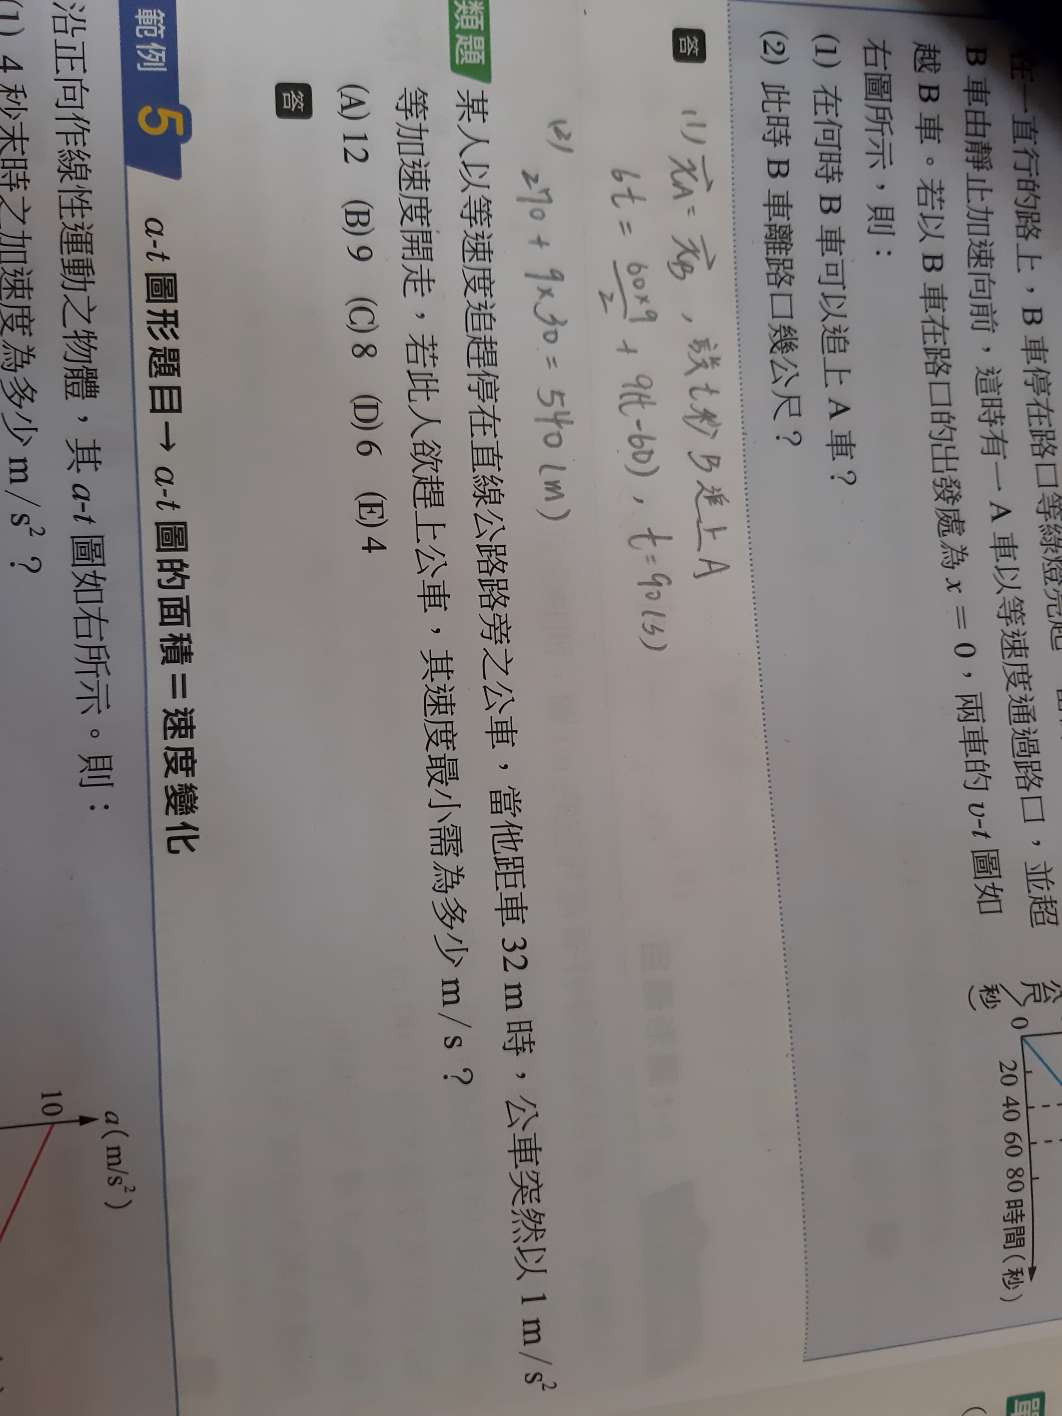 在一直行的路上，B 車停在路口等綠燈亮起
B 車由靜止加速向前，這時有一 A 車以等速度通過路口，並超
越 B 車。若以 B 車在路口的出發處為 x = 0，兩車的 v-t 圖如
右圖所示，則：
(1) 在何時 B 車可以追上 A 車？
(2) 此時 B 車離路口幾公尺？
公尺/秒
0
20 40 60 80 時間(秒)
答
(1) xA = xB ，設 t 秒 B 追上 A
6t = 60×9/2 + 9(t-60)，t = 90 (s)
(2) 270 + 9×30 = 540 (m)
類題
某人以等速度追趕停在直線公路路旁之公車，當他距車 32 m 時，公車突然以 1 m/s²
等加速度開走，若此人欲趕上公車，其速度最小需為多少 m/s？
(A) 12 (B) 9 (C) 8 (D) 6 (E) 4
答
範例 5 a-t 圖形題目→ a-t 圖的面積＝速度變化
沿正向作線性運動之物體，其 a-t 圖如右所示。則：
(1) 4 秒末時之加速度為多少 m/s²？
a(m/s²)
10